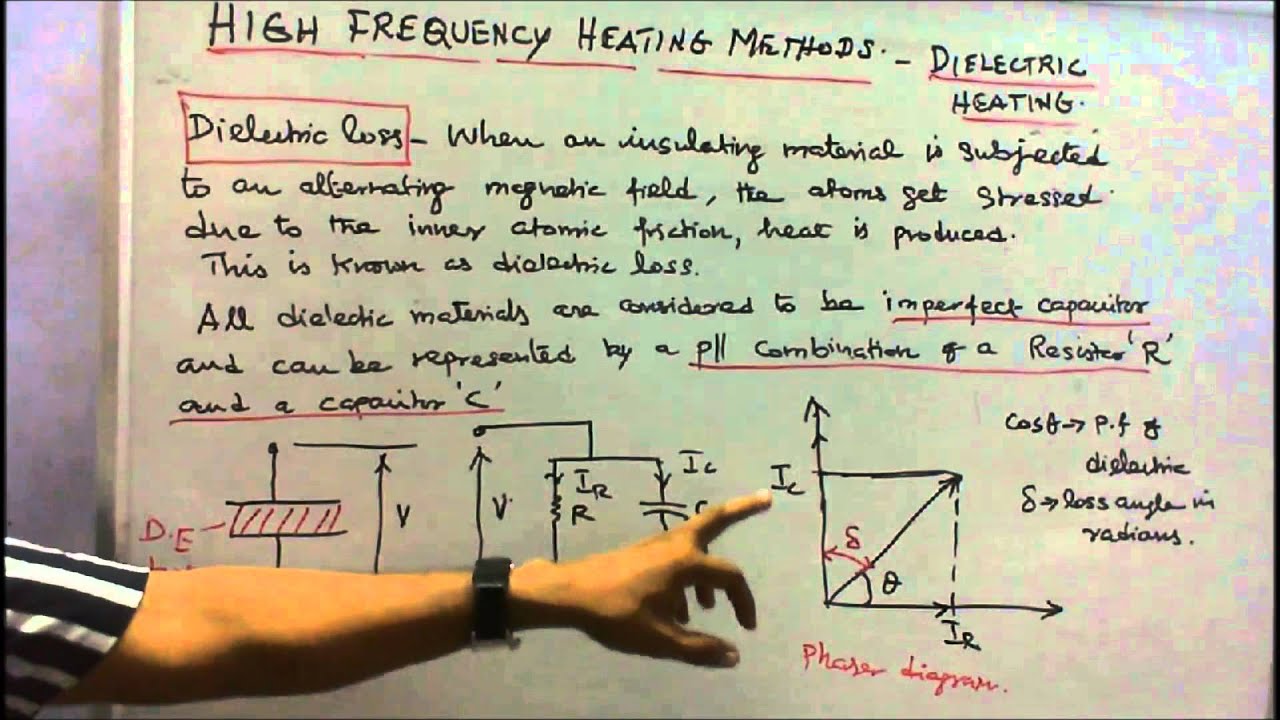 HIGH FREQUENCY HEATING METHODS. - DIELECTRIC
HEATING.
Dielectric loss - When an insulating material is subjected
to an alternating magnetic field, the atoms get stressed
due to the inner atomic friction, heat is produced.
This is known as dielectric loss.
All dielectic materials are considered to be imperfect capacitor
and can be represented by a pll combination of a Resistor 'R'
and a capacitor 'C'
D.E
V
V.
IR
R
Ic
Ic
δ
θ
IR
Phaser diagram.
cosθ → p.f of
dielectric
δ → loss angle in
radians.